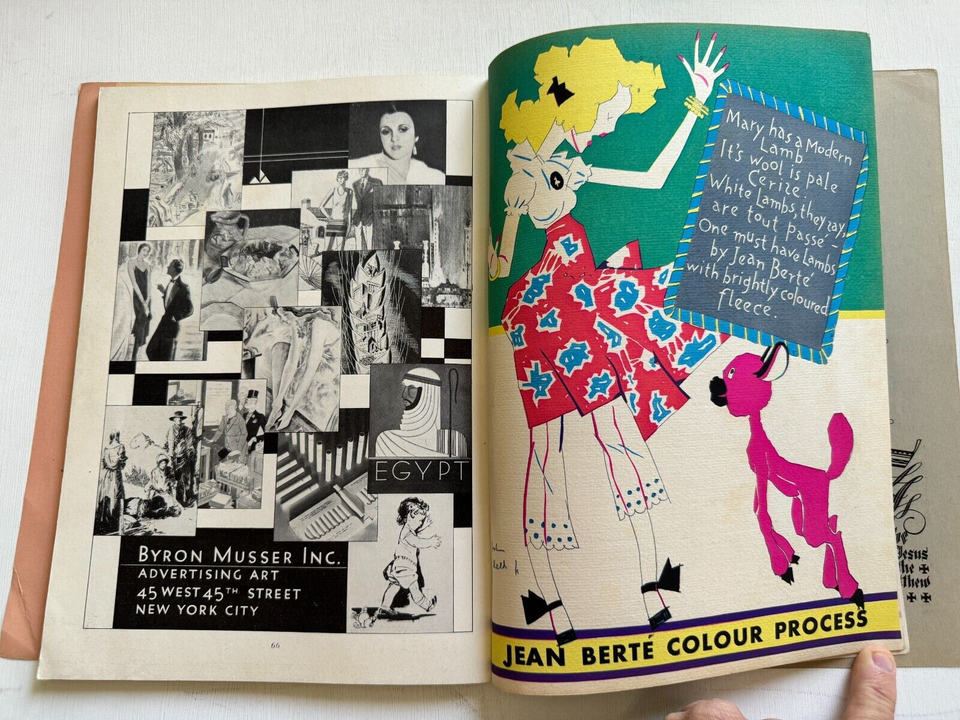 EGYPT
BYRON MUSSER INC.
ADVERTISING ART
45 WEST 45TH STREET
NEW YORK CITY
66
Mary has a Modern
Lamb
It's wool is pale
Cerize.
White Lambs, they say,
are tout passé –
One must have Lambs
by Jean Berté
with brightly coloured
fleece.
JEAN BERTÉ COLOUR PROCESS
Jesus
the